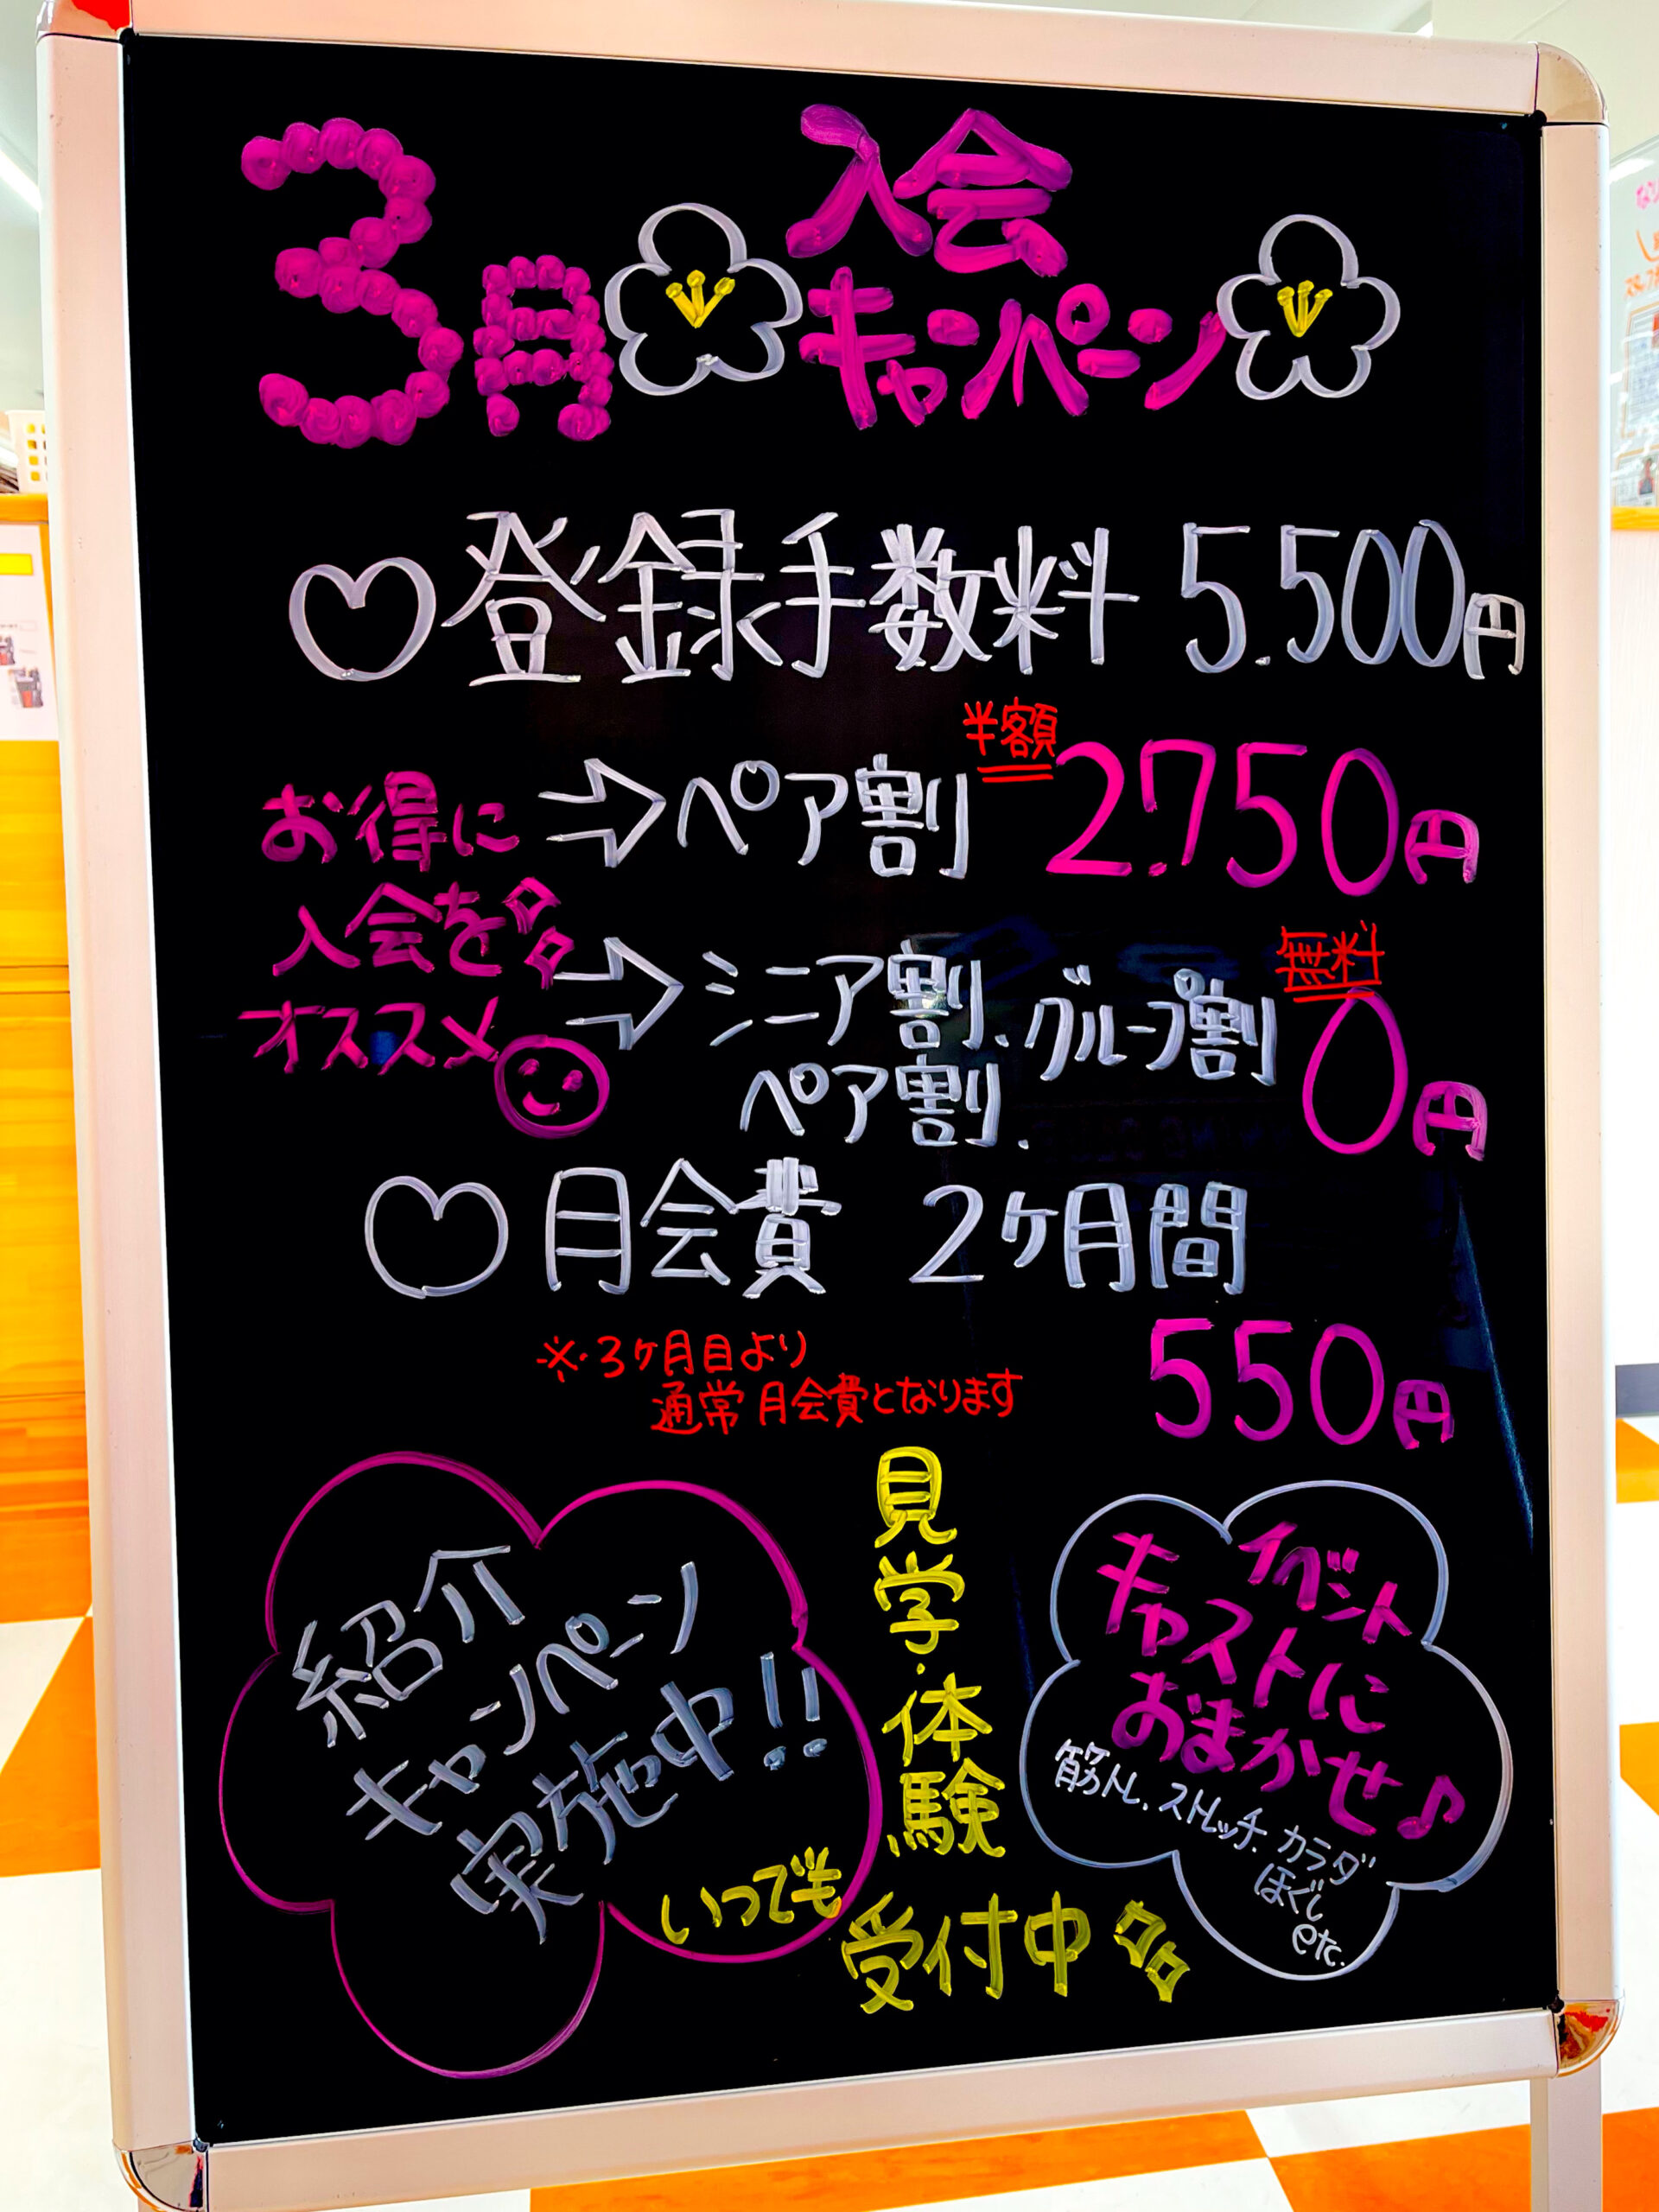 3月
入会
キャンペーン
♡登録手数料 5.500円
お得に
入会を
オススメ
→ペア割 半額 2.750円
→シニア割、グループ割 無料 0円
ペア割.
♡月会費 2ヶ月間
550円
※.3ヶ月目より
通常月会費となります
紹介
キャンペーン
実施中!!
見学・体験
いつでも
受付中
イベント
キャストに
おまかせ♪
筋トレ、ストレッチ、カラダ
ほぐし
etc.